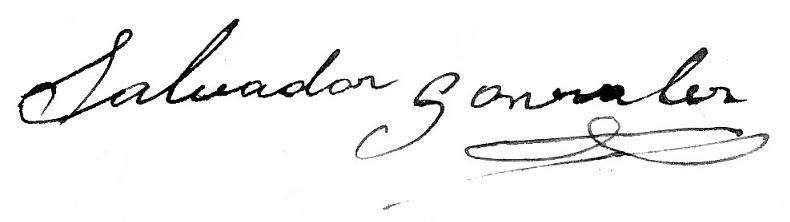 Salvador Gonzalez